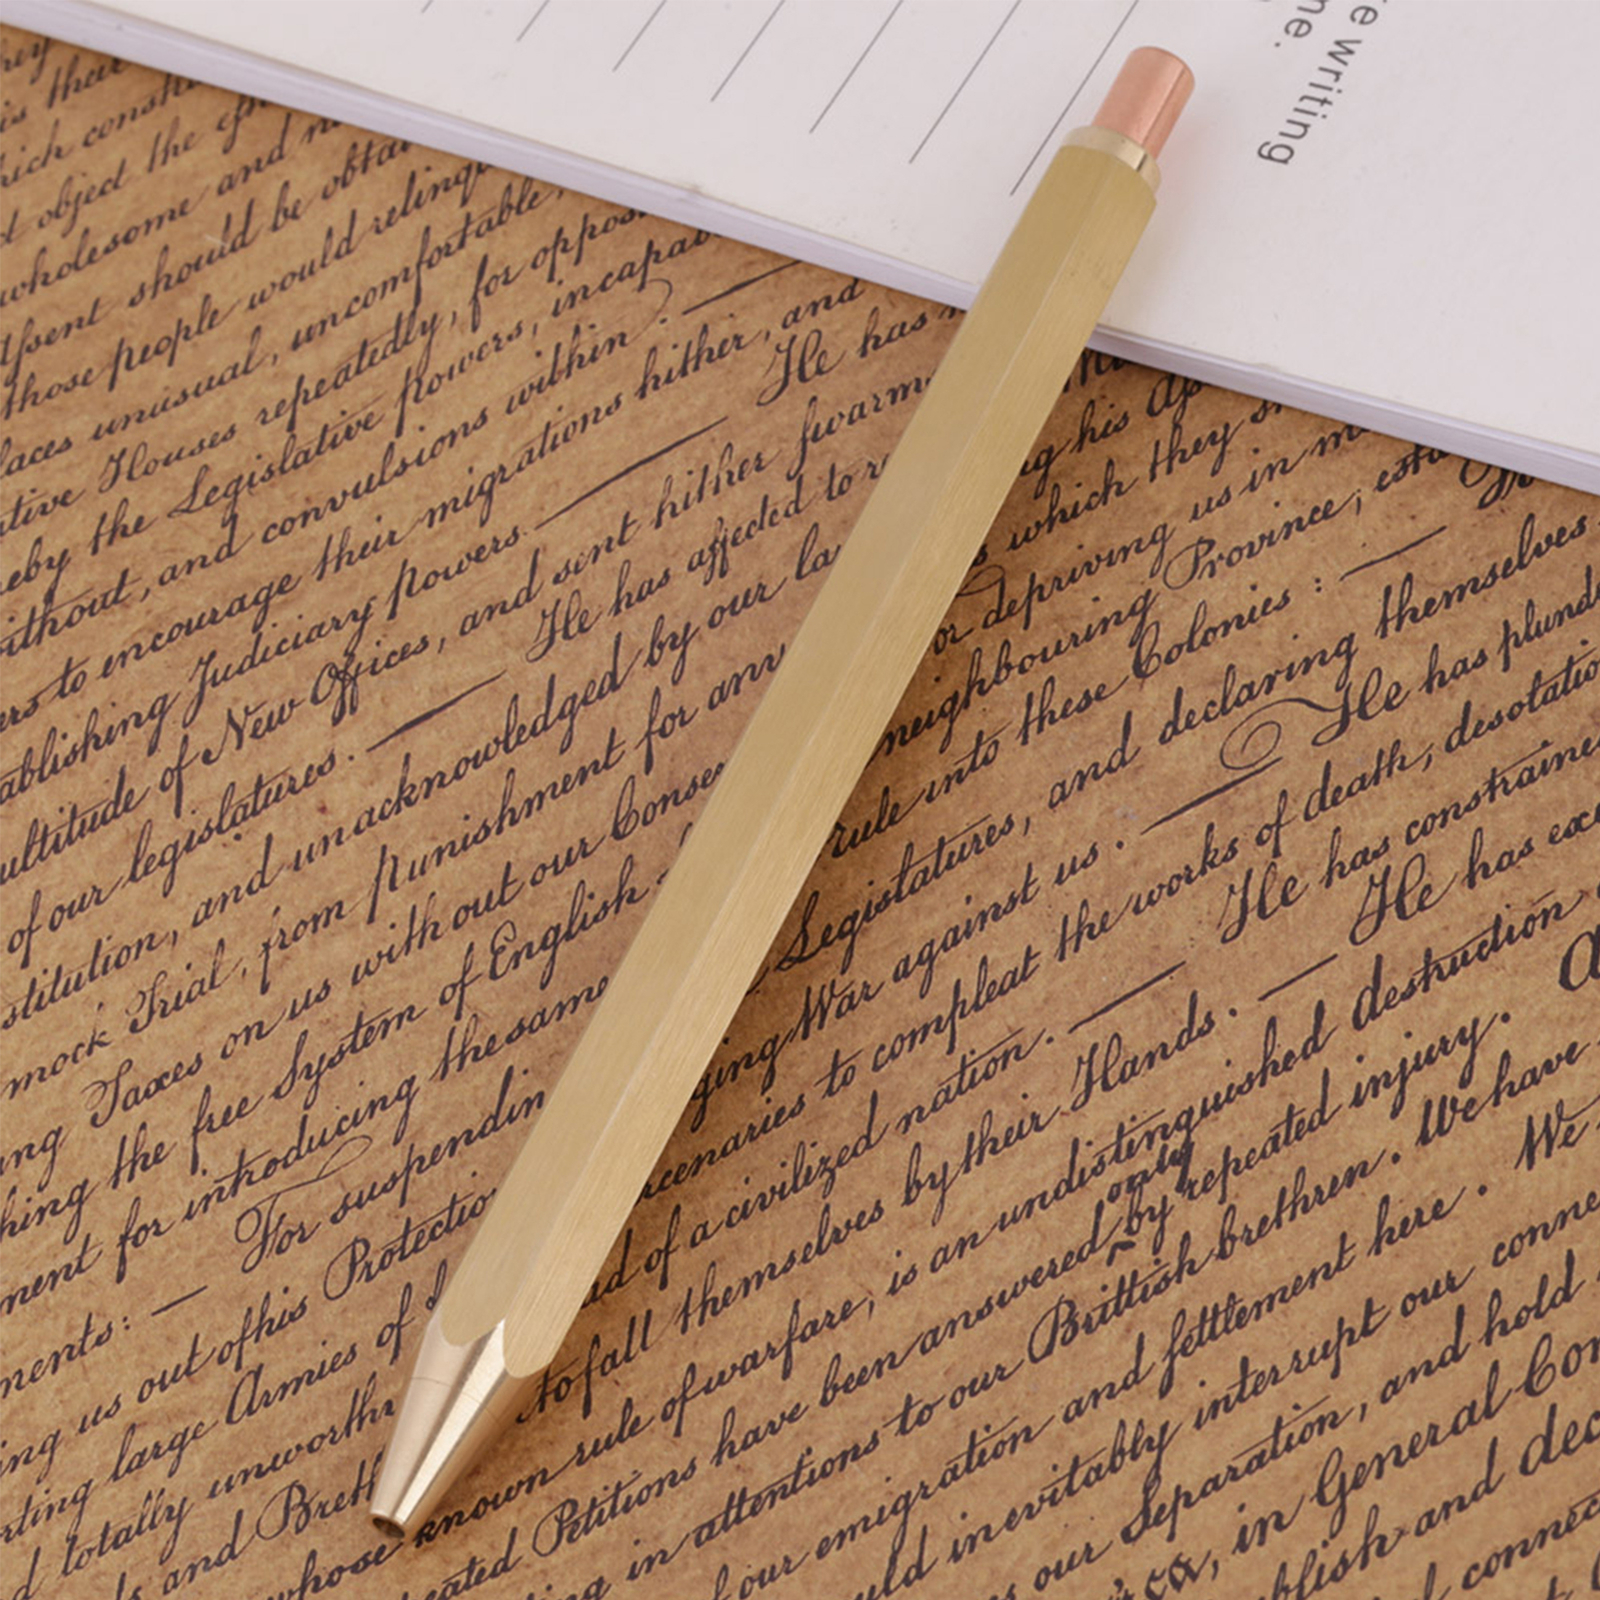 e writing
me.
they
is that
hich constr
object the eff
wholesome and n
Assent should be obtai
those people would relinqu
laces unusual, uncomfortable,
ative Houses repeatedly, for oppos
reby the Legislative powers, incapab
ithout, and convulsions within. —
ers to encourage their migrations hither, and
ablishing Judiciary powers. — He has
ultitude of New Offices, and sent hither swarm
of our legislatures. — He has affected to r
stitution, and unacknowledged by our la g his Ass
mock Trial, from punishment for any which they s
ing Taxes on us without our Conse or depriving us in m
hing the free System of English neighbouring Province, esta
ment for introducing the same rule into these Colonies : —
ments: — For suspendin Legislatures, and declaring themselves
ing us out of his Protectio ging War against us. — He has plund
rting large Armies of rcenaries to compleat the works of death, desolatio
d totally unworthy ad of a civilized nation. — He has constraine
and Breth to fall themselves by their Hands. — He has exc
whose known rule of warfare, is an undistinguished destruction
eated Petitions have been answered only by repeated injury. A
ing in attentions to our Brittish brethren. We have
our emigration and settlement here. We
uld inevitably interrupt our conne
our Separation, and hold
ca, in General Con
blish and dec
connec